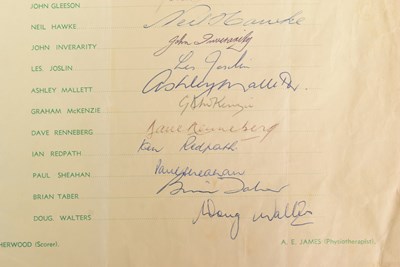 JOHN GLEESON
NEIL HAWKE Neil Hawke
JOHN INVERARITY John Inverarity
LES. JOSLIN Les Joslin
ASHLEY MALLETT Ashley Mallett
GRAHAM McKENZIE G D McKenzie
DAVE RENNEBERG Dave Renneberg
IAN REDPATH Ian Redpath
PAUL SHEAHAN Paul Sheahan
BRIAN TABER Brian Taber
DOUG WALTERS Doug Walters
HERWOOD (Scorer). A. E. JAMES (Physiotherapist).